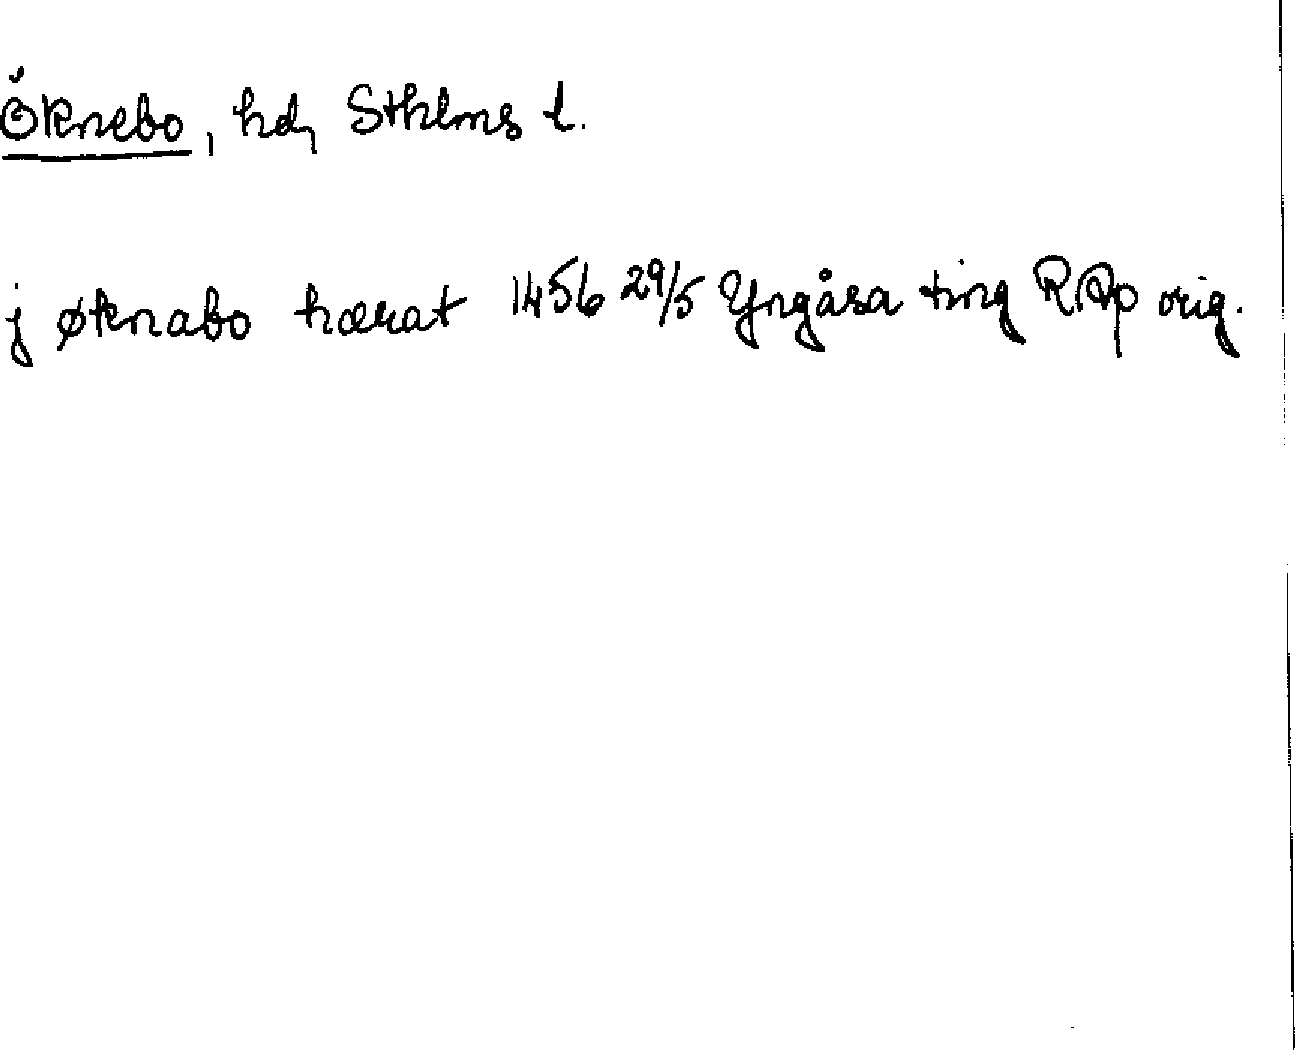 Öknebo, hd, Sthlms l.
j øknabo hærat 1456 29/5 Yngåsa ting RAp orig.